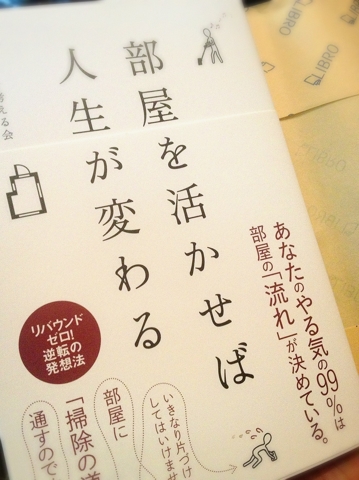 部屋を活かせば
人生が変わる
考える会
あなたのやる気の99%は
部屋の「流れ」が決めている。
リバウンド
ゼロ!
逆転の
発想法
いきなり片づけ
してはいけませ
部屋に
「掃除の道
通すので
LIBRO
LIBRO
LIBRO
LIBRO